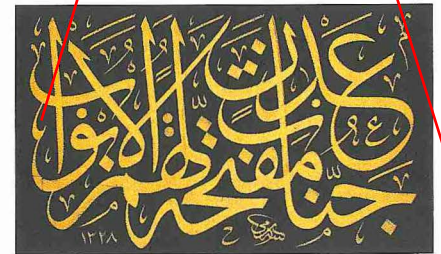 جنات عدن مفتحة لهم الابواب
١٣٢٨